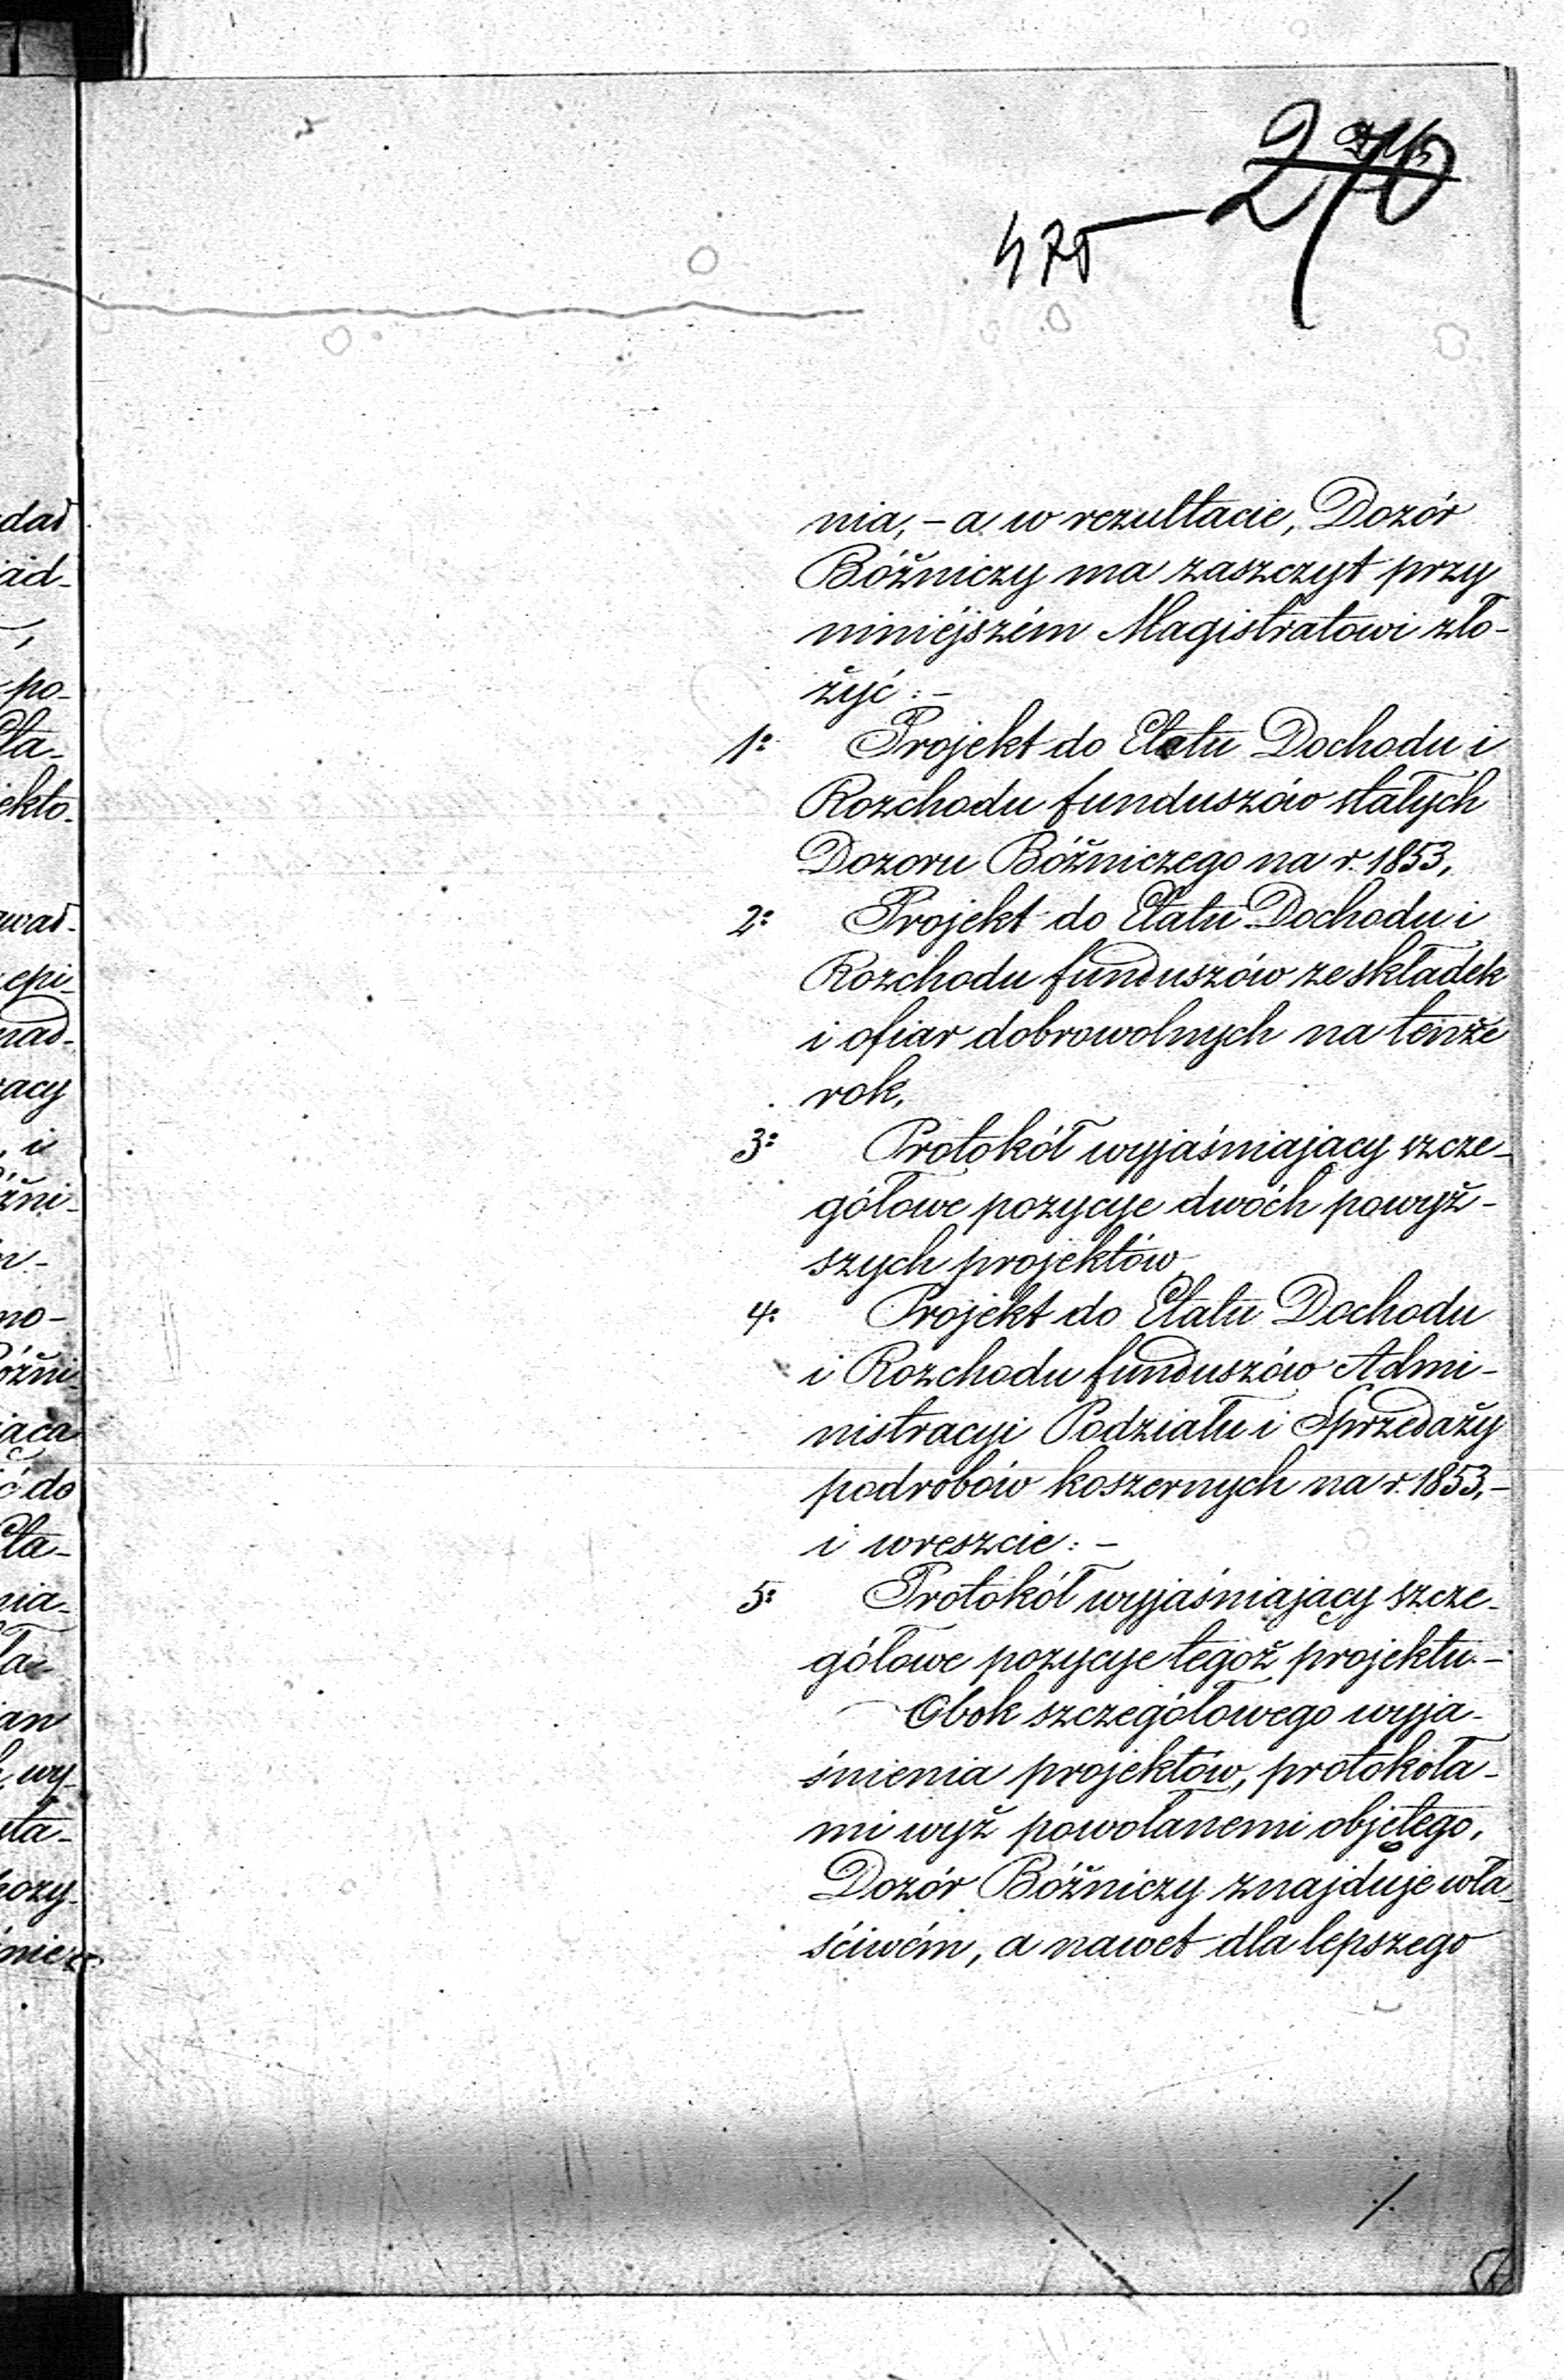 270
475
nia, – a w rezultacie, Dozór
Bóżniczy ma zaszczyt przy
niniéjszém Magistratowi zło-
żyć: –
1º Projekt do Etatu Dochodu i
Rozchodu funduszów stałych
Dozoru Bóżniczego na r. 1853,
2º Projekt do Etatu Dochodu i
Rozchodu funduszów ze składek
i ofiar dobrowolnych na tenże
rok,
3º Protokół wyjaśniajacy szcze-
gółowe pozycye dwóch powyż-
szych projektów
4º Projekt do Etatu Dochodu
i Rozchodu funduszów Admi-
nistracyi Podziału i Sprzedaży
podrobów koszernych na r. 1853, –
i wreszcie: –
5º Protokół wyjaśniający szcze-
gółowe pozycye tegoż projektu. –
Obok szczegółowego wyja-
śnienia projektów, protokóła-
mi wyż powołanemi objętego,
Dozór Bóżniczy znajduje wła-
ściwém, a nawet dla lepszego